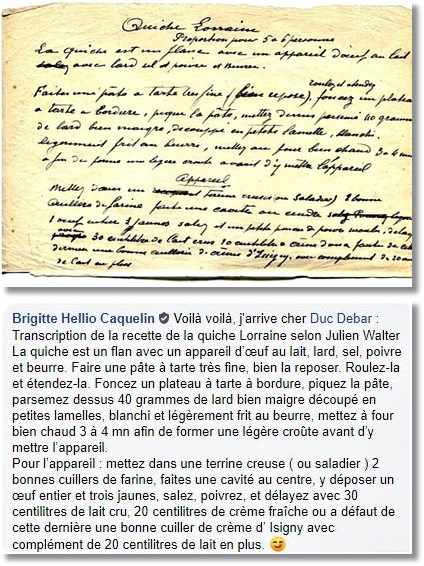 Quiche Lorraine
Proportion pour 5 à 6 personnes
La quiche est un flanc avec un appareil d'œuf au lait
salez avec lard sel et poivre et Beurre.
roulez et étendez
Faites une pâte à tarte très fine (bien reposé), foncez un plateau
a tarte a bordure, piquez la pâte, mettez dessus parsemé 40 grammes
de lard bien maigre, découpé en petite lamelle, blanchi
légèrement frit au beurre, mettez au four bien chaud 3 a 4 mn
a fin de forme une légère croute avant d'y mettre l'appareil
Appareil
Mettez dans un terrine creuse (ou saladier) 2 bonne
cuillère de farine faite une cavité au centre
1 œuf entier 3 jaunes salez et un petit peu de poivre moulu, délayez
avec 30 centilitre de lait crus 20 centilitre de crème ou a faute de cette
dernière une bonne cuillère de crème d'Isigny, avec complément de 20 cent
de lait en plus
Brigitte Hellio Caquelin Voilà voilà, j'arrive cher Duc Debar :
Transcription de la recette de la quiche Lorraine selon Julien Walter
La quiche est un flan avec un appareil d'œuf au lait, lard, sel, poivre
et beurre. Faire une pâte à tarte très fine, bien la reposer. Roulez-la
et étendez-la. Foncez un plateau à tarte à bordure, piquez la pâte,
parsemez dessus 40 grammes de lard bien maigre découpé en
petites lamelles, blanchi et légèrement frit au beurre, mettez à four
bien chaud 3 à 4 mn afin de former une légère croûte avant d'y
mettre l'appareil.
Pour l'appareil : mettez dans une terrine creuse ( ou saladier ) 2
bonnes cuillers de farine, faites une cavité au centre, y déposer un
œuf entier et trois jaunes, salez, poivrez, et délayez avec 30
centilitres de lait cru, 20 centilitres de crème fraîche ou a défaut de
cette dernière une bonne cuiller de crème d' Isigny avec
complément de 20 centilitres de lait en plus. 😋